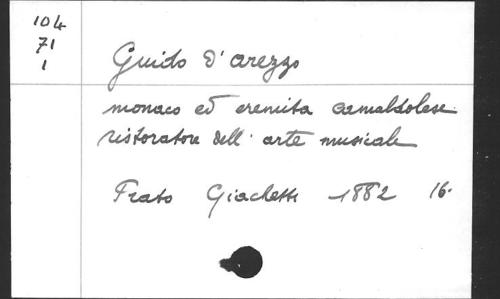 104
71
1
Guido d'Arezzo
monaco ed eremita camaldolese
ristoratore dell'arte musicale
Prato Giachetti 1882 16.